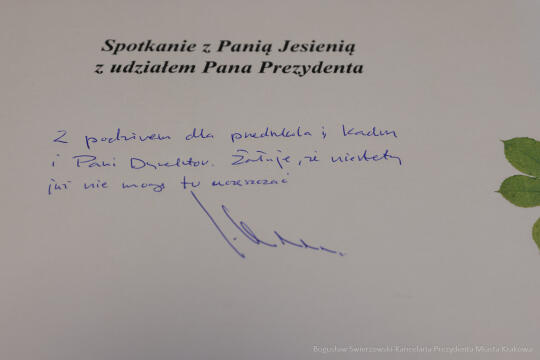 Spotkanie z Panią Jesienią
z udziałem Pana Prezydenta
Z podziwem dla przedszkola, kadry
i Pani Dyrektor. Żałuję, że niestety
już nie mogę tu uczęszczać
Bogusław Świerzowski-Kancelaria Prezydenta Miasta Krakowa